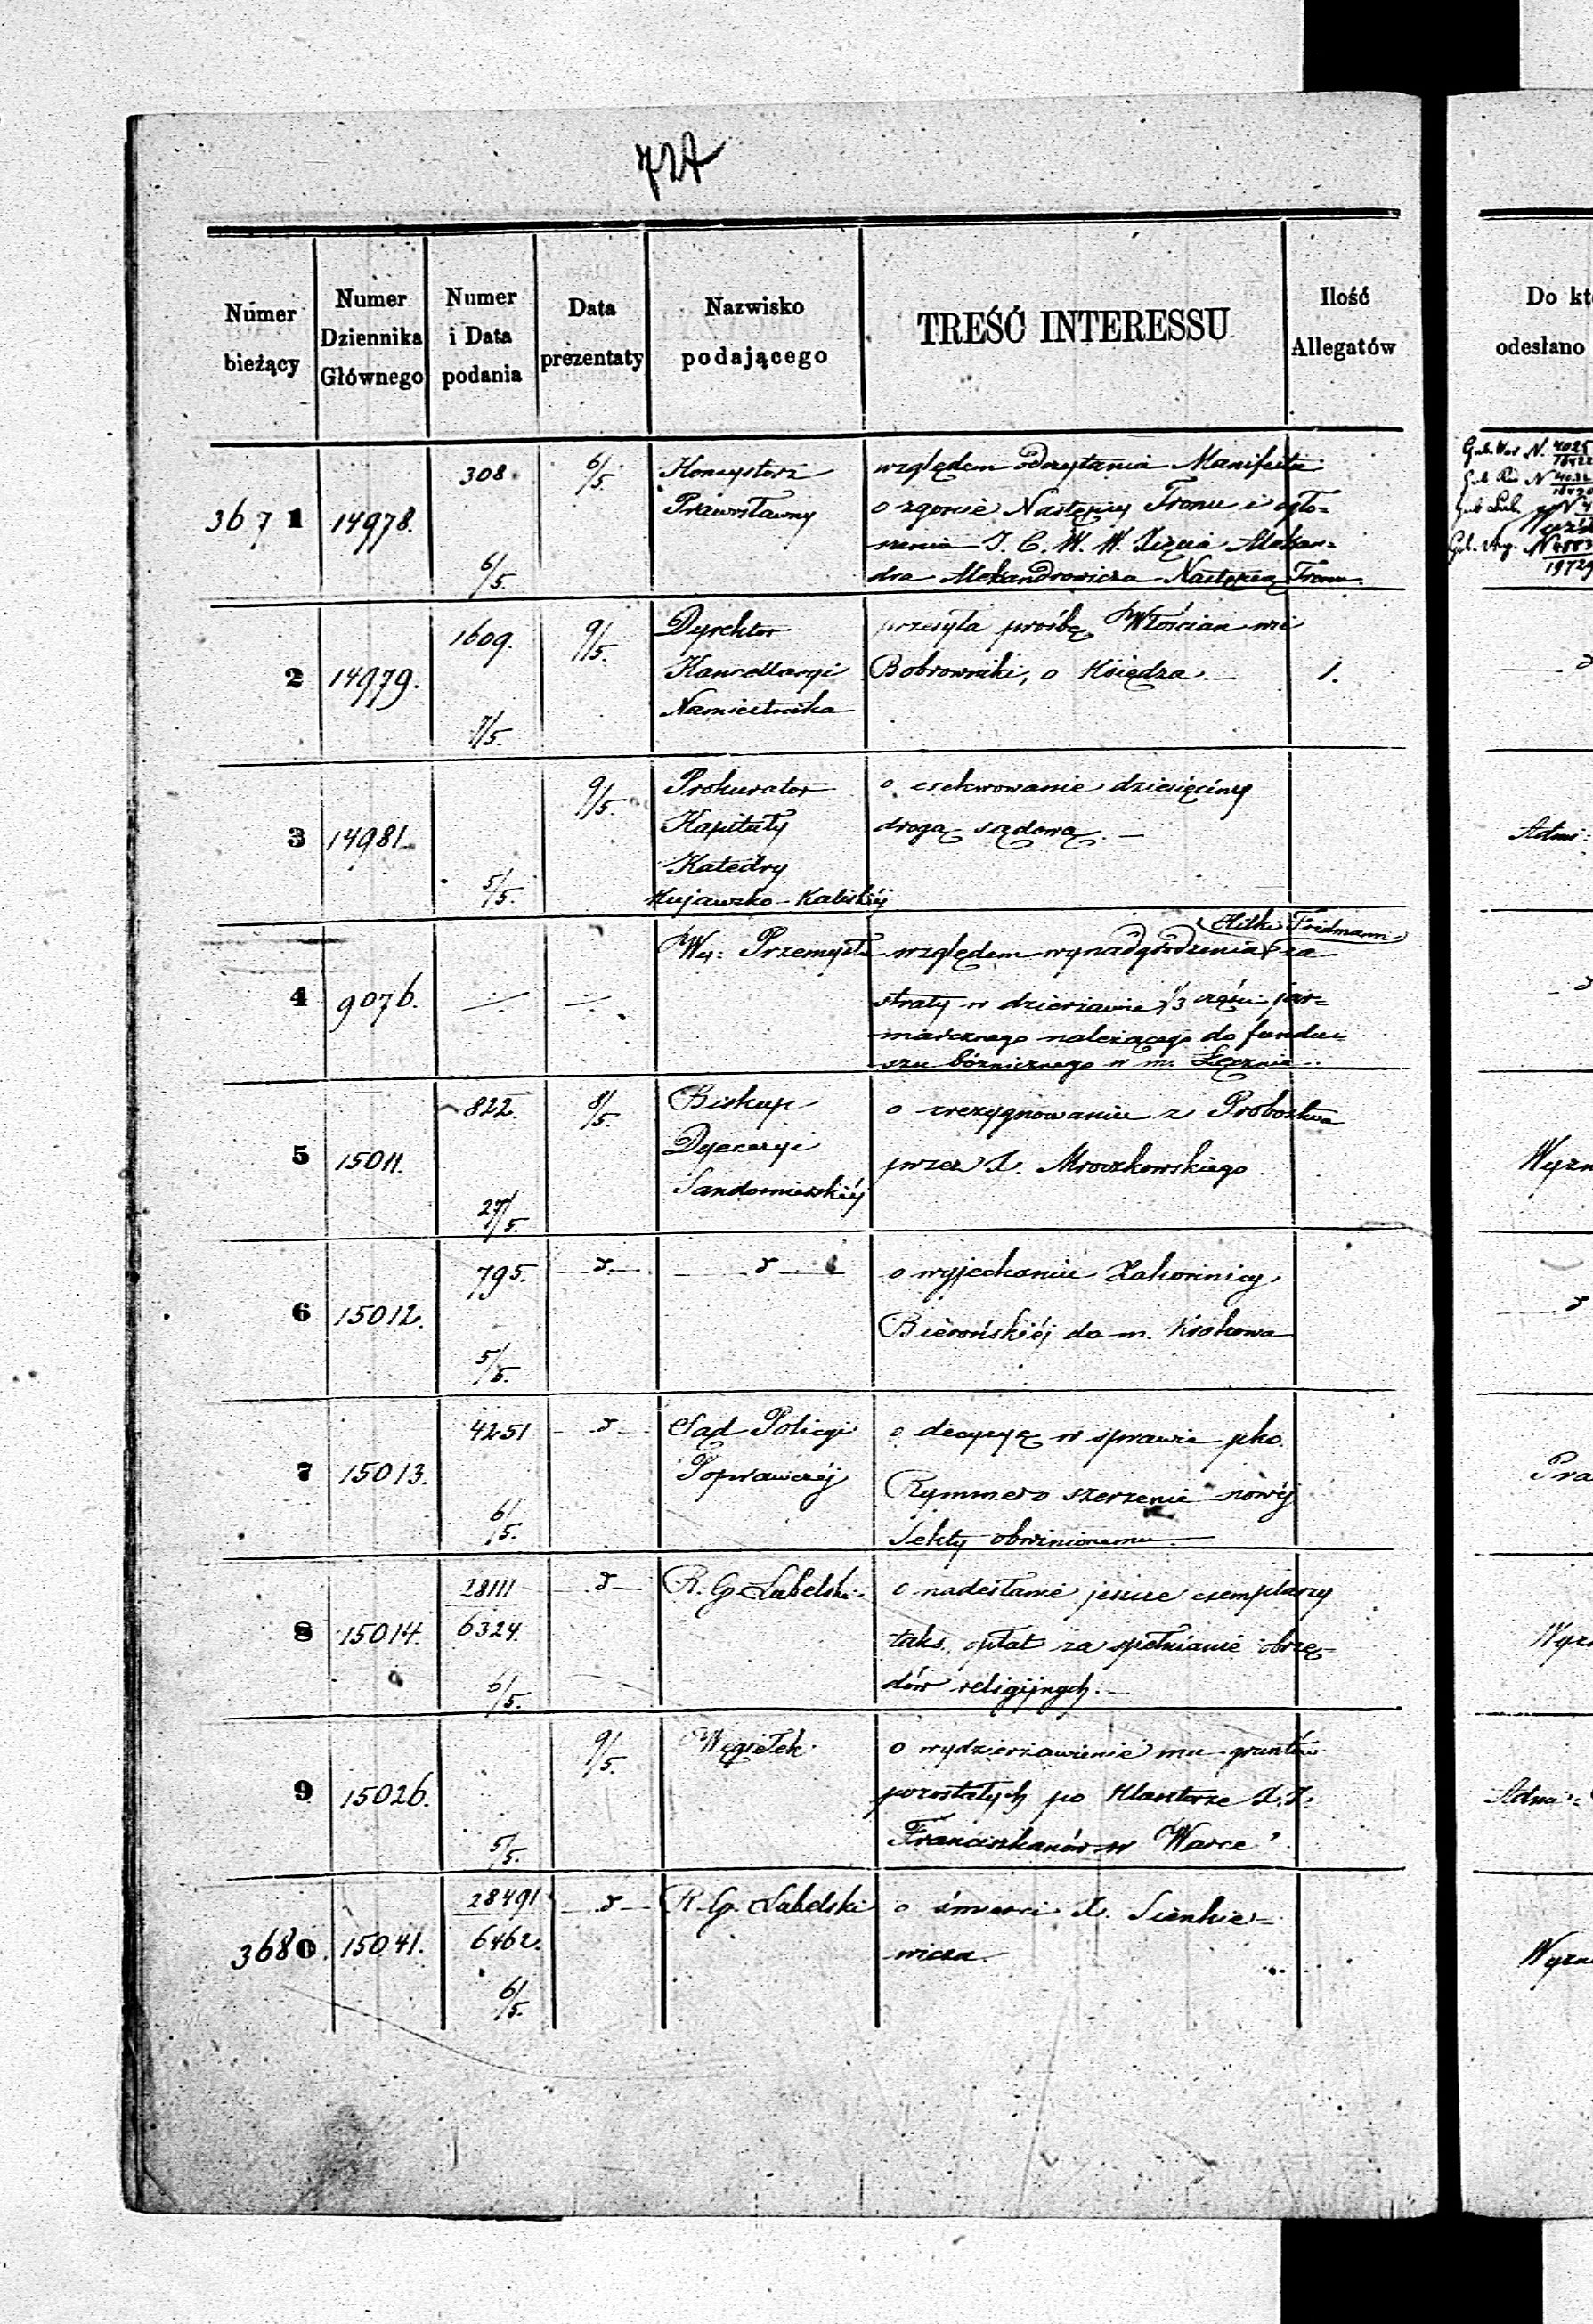 Numer
bieżący
Numer
Dziennika
Głównego
Numer
i Data
podania
Data
prezentaty
Nazwisko
podającego
TREŚĆ INTERESSU
Ilość
Allegatów
Do kt
odesłano
3671
14978.
308
6/5.
6/5.
Konsystorz
Prawosławny
względem odczytania Manifestu
o zgonie Następcy Tronu i ogło=
szenia J. C. W. W. Xięcia Alexan=
dra Alexandrowicza Następcą Tronu.
2
14979.
1609.
7/5.
9/5.
Dyrektor
Kancellaryi
Namiestnika
przesyła prośbę Włościan wsi
Bobrowniki, o Księdza.
1.
3
14981.
5/5.
9/5.
Prokurator
Kapituły
Katedry
Kujawsko-Kaliskiéj
o exekwowanie dziesięciny
drogą sądową.
Admi:
4
9076.
Wy: Przemysłu
Fridmann
względem wynadgrodzenia za
straty w dzierżawie 1/3 części jar=
marcznego należącego do fundu=
szu bóżniczego w m. Łęcznie
5
15011.
822.
27/5.
8/5.
Biskup
Dyecezyi
Sandomierskiéj
o zrezygnowaniu z Probostwa
przez X. Mroczkowskiego
Wyzn
6
15012.
795.
5/5.
o wyjechaniu Zakonnicy
do m. Krakowa
7
15013.
4251
6/5.
Sąd Policyi
Poprawczéj
o decyzyę w sprawie pko.
Rymmer o szerzenie nowéj
Sekty obwinionemu.
Pra
8
15014.
28111
6324.
6/5.
R. G. Lubelski
o nadesłanie jeszcze exemplarzy
taks, opłat za spełnianie obrzę=
dów religijnych.
Wyzn
9
15026.
5/5.
9/5.
Węgiełek
o wydzierżawienie mu gruntów
pozostałych po Klasztorze X.X.
Franciszkanów w Warce
Admi:
3680.
15041.
28491
6462.
6/5.
R. G. Lubelski
o śmierci X. Sienkie=
wicza.
Wyzn